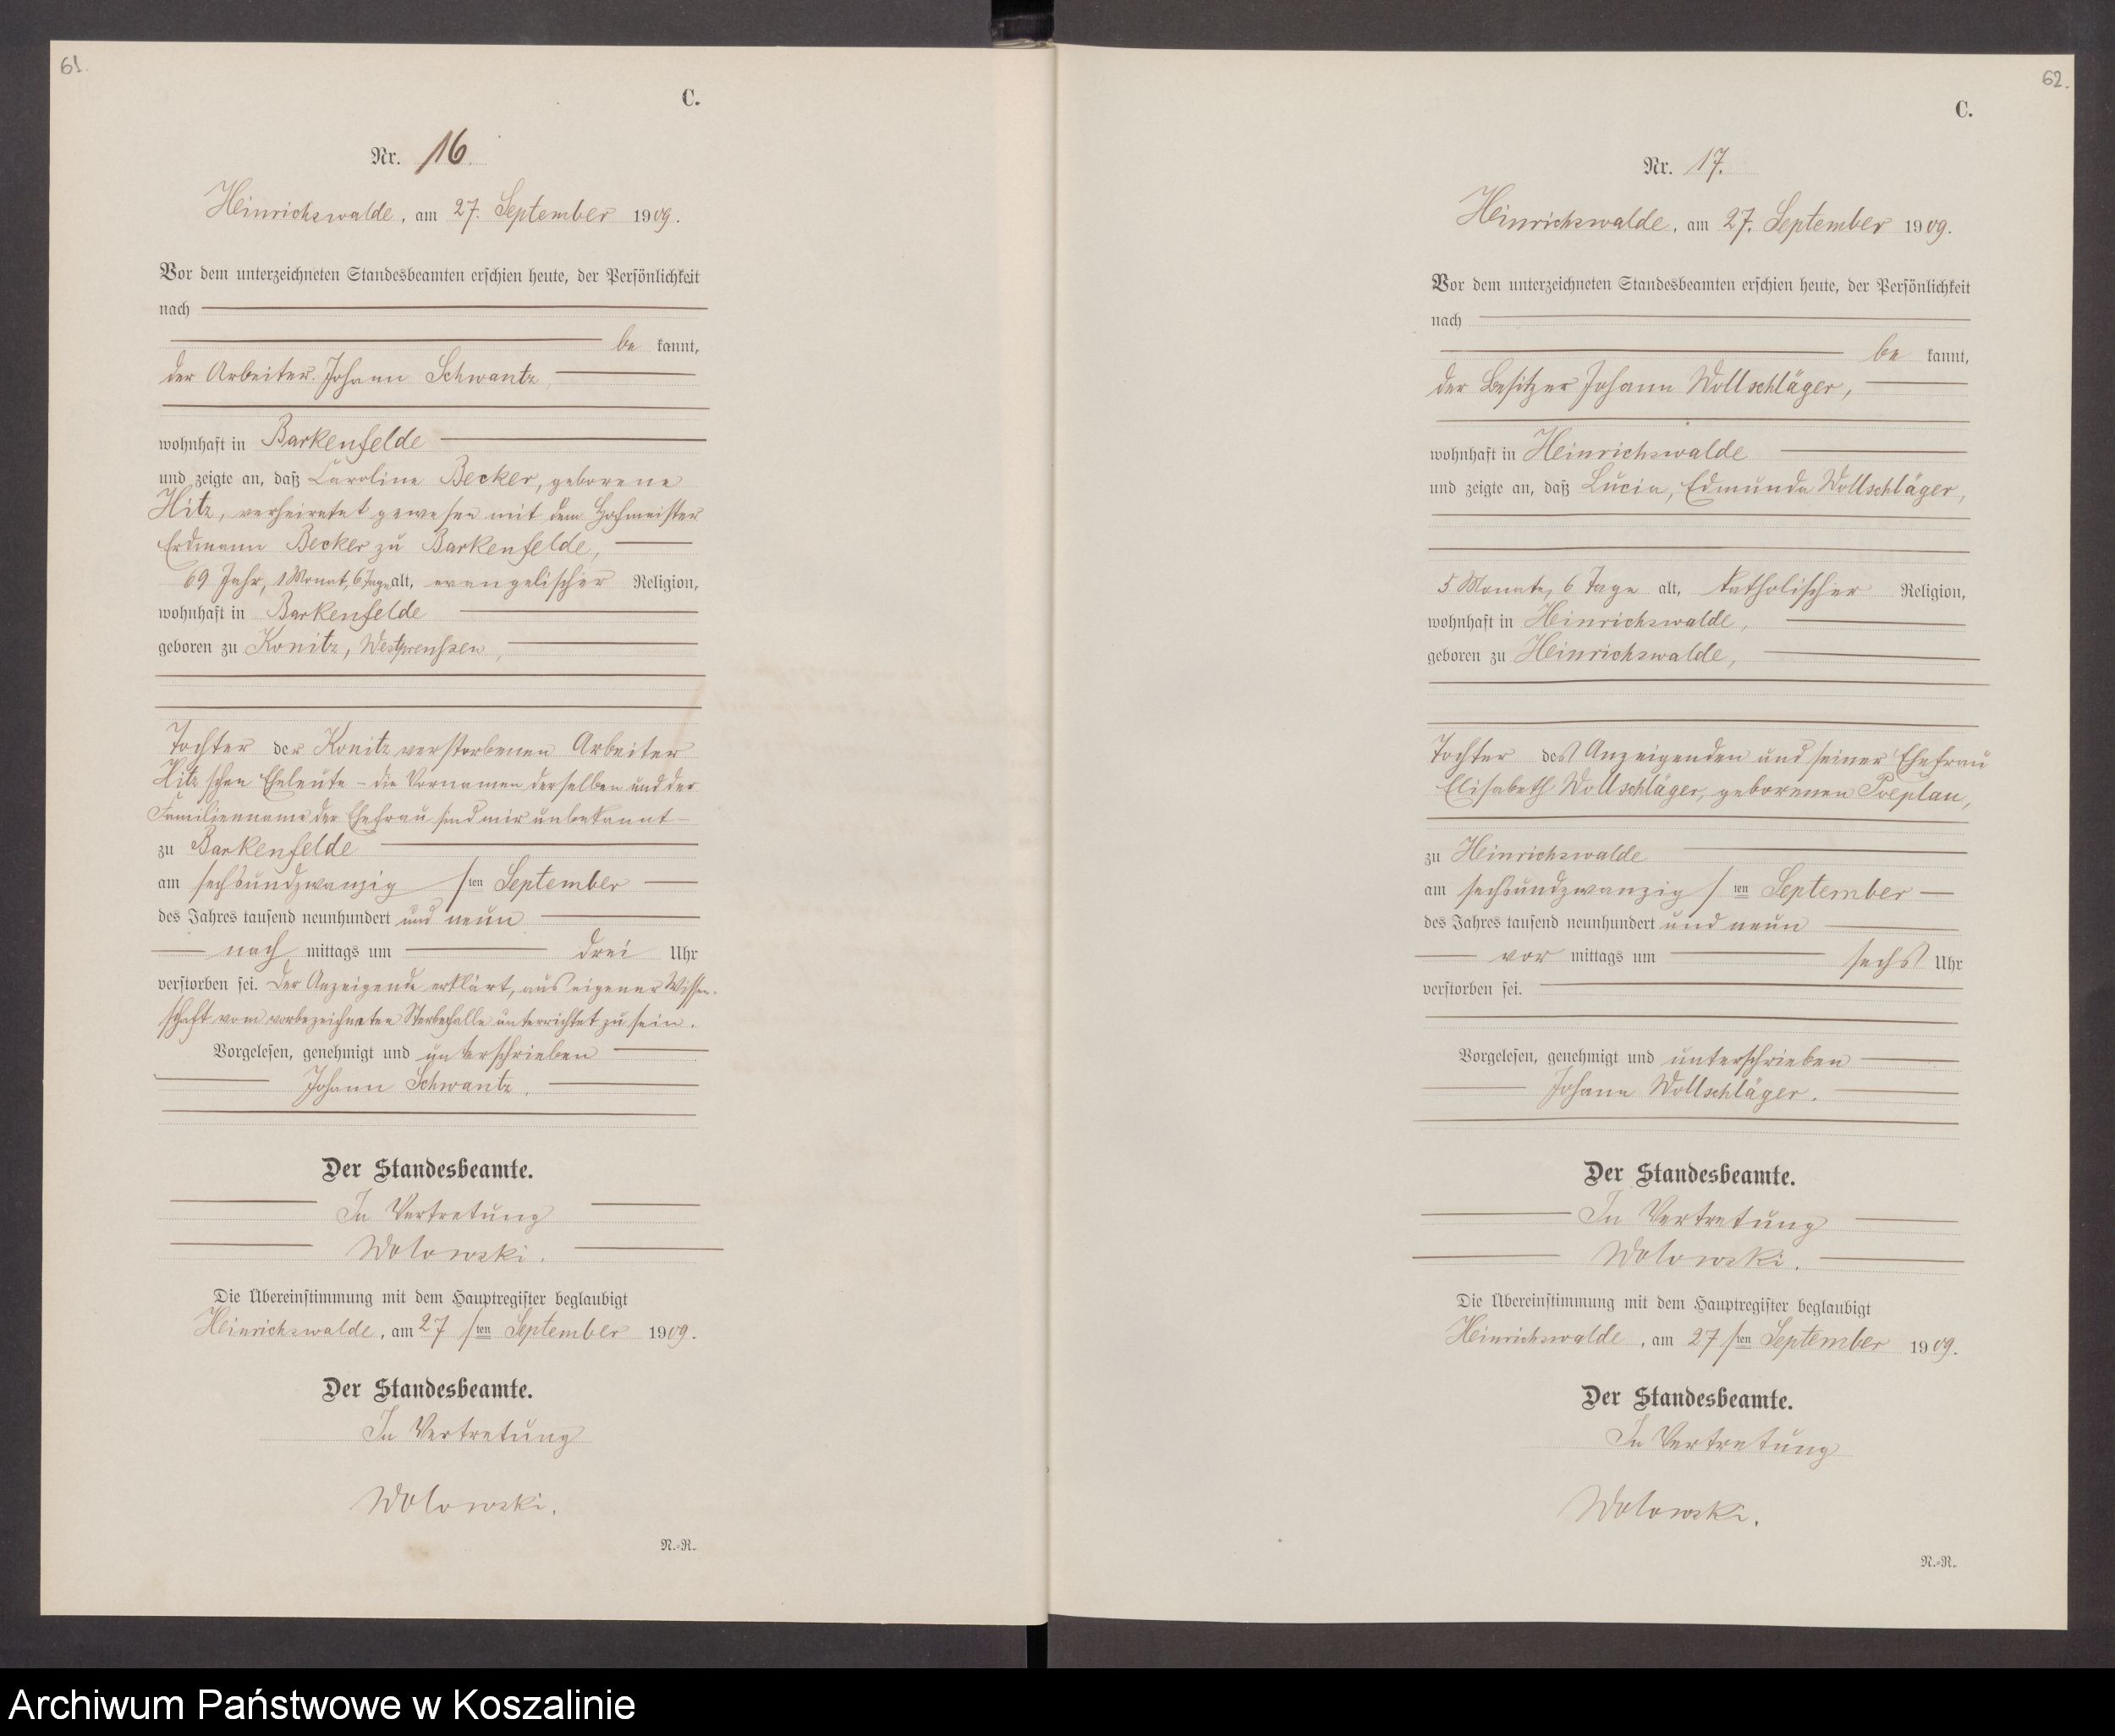 61.
C.
Nr. 16.
Heinrichswalde, am 27. September 1909.
Vor dem unterzeichneten Standesbeamten erschien heute, der Persönlichkeit
nach
be kannt,
der Arbeiter Johann Schwantz,
wohnhaft in Barkenfelde
und zeigte an, daß Caroline Becker, geborene
Hitz, verheiratet gewesen mit dem Hofmeister
Erdmann Becker zu Barkenfelde,
69 Jahr, 1 Monat, 6 Tage alt, evangelischer Religion,
wohnhaft in Barkenfelde
geboren zu Konitz, Westpreußen,
Tochter der Konitz verstorbenen Arbeiter
Hitz'schen Eheleute – die Vornamen derselben und der
Familienname der Ehefrau sind mir unbekannt –
zu Barkenfelde
am sechsundzwanzig ten September
des Jahres tausend neunhundert und neun
nach mittags um drei Uhr
verstorben sei. Der Anzeigende erklärt, aus eigener Wissen-
schaft vom vorbezeichneten Sterbefalle unterrichtet zu sein.
Vorgelesen, genehmigt und unterschrieben
Johann Schwantz.
Der Standesbeamte.
In Vertretung
Wolowski.
Die Übereinstimmung mit dem Hauptregister beglaubigt
Heinrichswalde, am 27 ten September 1909.
Der Standesbeamte.
In Vertretung
Wolowski.
N.-R.
62.
C.
Nr. 17.
Heinrichswalde, am 27. September 1909.
Vor dem unterzeichneten Standesbeamten erschien heute, der Persönlichkeit
nach
be kannt,
der Besitzer Johann Wollschläger,
wohnhaft in Heinrichswalde
und zeigte an, daß Lucia, Edmunda Wollschläger,
5 Monate, 6 Tage alt, katholischer Religion,
wohnhaft in Heinrichswalde,
geboren zu Heinrichswalde,
Tochter des Anzeigenden und seiner Ehefrau
Elisabeth Wollschläger, geborenen
zu Heinrichswalde
am sechsundzwanzig ten September
des Jahres tausend neunhundert und neun
vor mittags um sechs Uhr
verstorben sei.
Vorgelesen, genehmigt und unterschrieben
Johann Wollschläger.
Der Standesbeamte.
In Vertretung
Wolowski.
Die Übereinstimmung mit dem Hauptregister beglaubigt
Heinrichswalde, am 27 ten September 1909.
Der Standesbeamte.
In Vertretung
Wolowski.
N.-R.
Archiwum Państwowe w Koszalinie